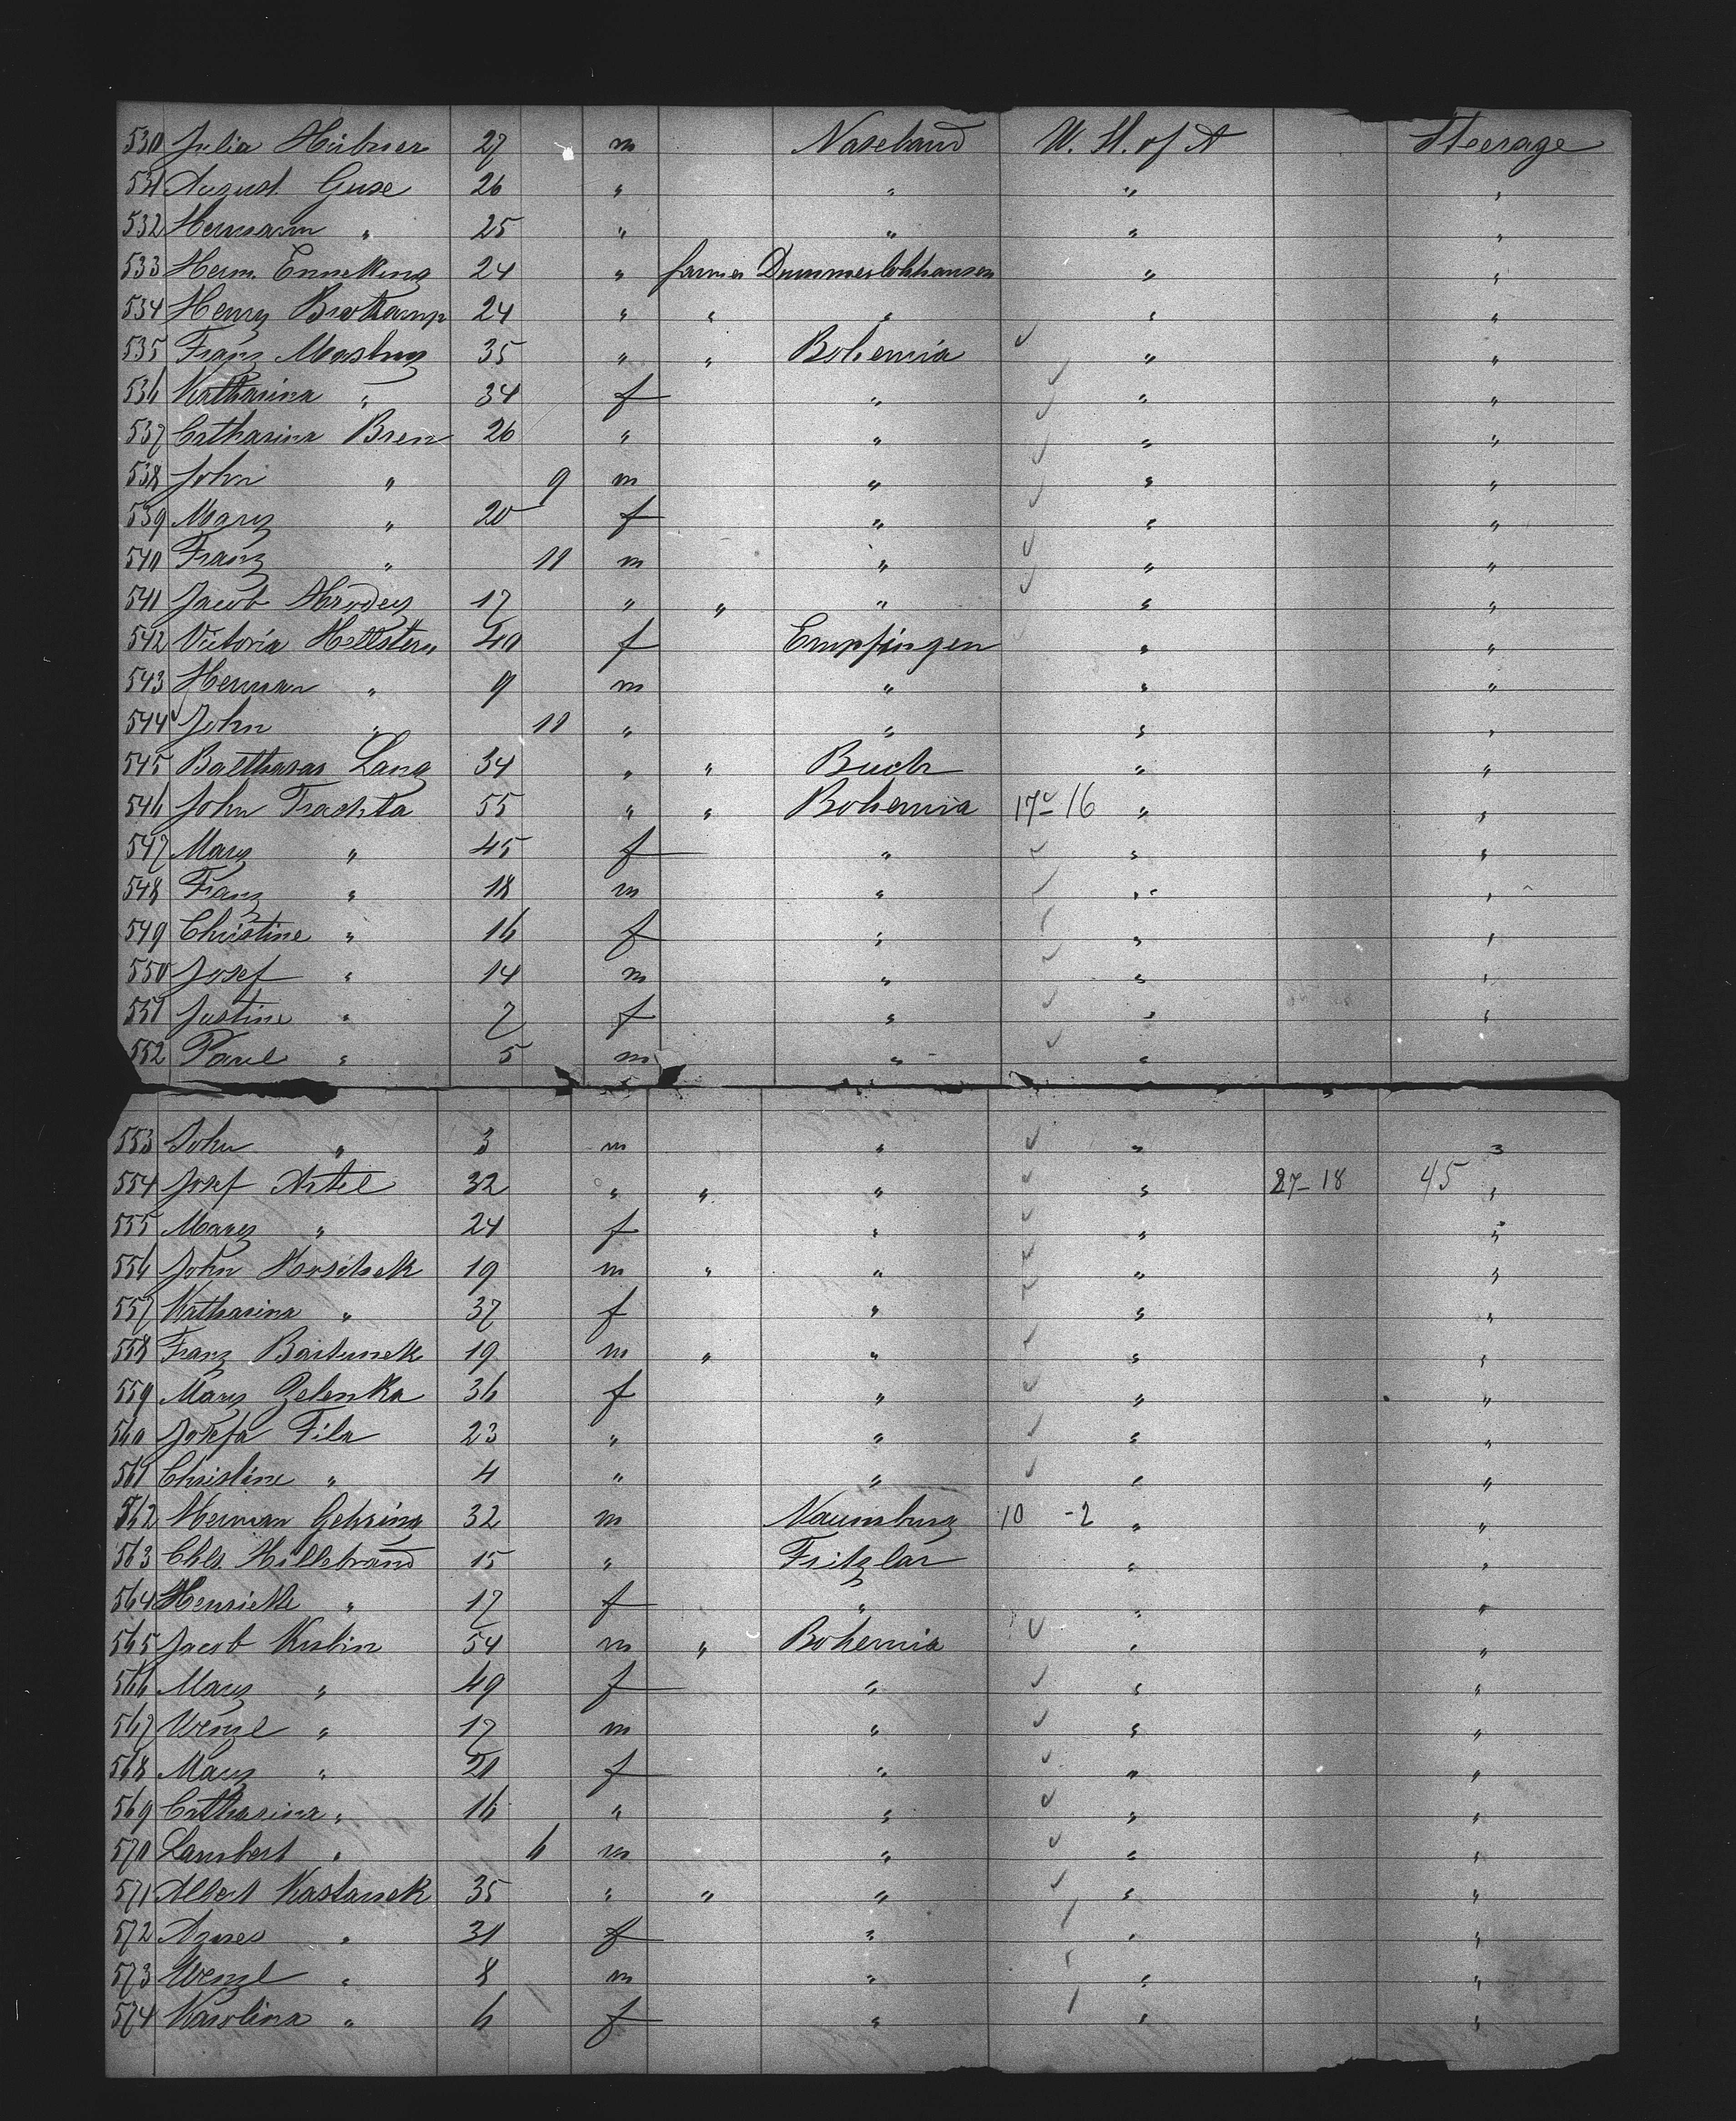 530 Julia Hübner 27 m Naseband U. St. of A Steerage
531 August Guse 26 " " " "
532 Hermann " 25 " " " "
533 Herm. Enneking 24 " farmer Dummerlohhausen " "
534 Henry Brokamp 24 " " " " "
535 Franz 35 " " Bohemia " "
536 Katharina " 34 f " " "
537 Catharina Bren 26 " " " "
538 John " 9 m " " "
539 Mary " 20 f " " "
540 Franz " 11 m " " "
541 Jacob 17 " " " " "
542 Victoria Hellstern 40 f Empfingen " "
543 Herman " 9 m " " "
544 John " 11 " " " "
545 Balthasar Lang 34 " " Buch " "
546 John Trachta 55 " " Bohemia 17-16 " "
547 Mary " 45 f " " "
548 Franz " 18 m " " "
549 Christine " 16 f " " "
550 Josef " 14 m " " "
551 Justine " 7 f " " "
552 Paul " 5 m " "
553 John " 3 m " " "
554 Josef Artel 32 " " " " 27-18 45 "
555 Mary " 24 f " " "
556 John Horschek 19 m " " " "
557 Katharina " 37 f " " "
558 Franz Bartunek 19 m " " " "
559 Mary Zelenka 36 f " " "
560 Josefa Fila 23 " " " "
561 Christine " 4 " " " "
562 Herman Gehring 32 m Naumburg 10 -2 " "
563 Chs. Hillebrand 15 " Fritzlar " "
564 Henriette " 17 f " " "
565 Jacob Krbin 54 m " Bohemia " "
566 Mary " 49 f " " "
567 Wenzl " 17 m " " "
568 Mary " 21 f " " "
569 Catharina " 16 " " " "
570 Lambert " 6 m " " "
571 Albert Kastanek 35 " " " " "
572 Agnes " 31 f " " "
573 Wenzl " 8 m " " "
574 Karolina " 6 f " " "